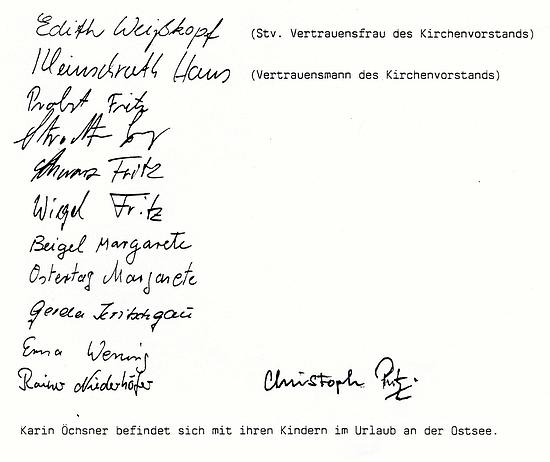 Edith Weißkopf (Stv. Vertrauensfrau des Kirchenvorstands)
Kleinschroth Hans (Vertrauensmann des Kirchenvorstands)
Probst Fritz
Schwarz Fritz
Wiegel Fritz
Beigel Margarete
Ostertag Margarete
Gerda
Emma Wening
Rainer Niederhöfer Christoph
Karin Öchsner befindet sich mit ihren Kindern im Urlaub an der Ostsee.